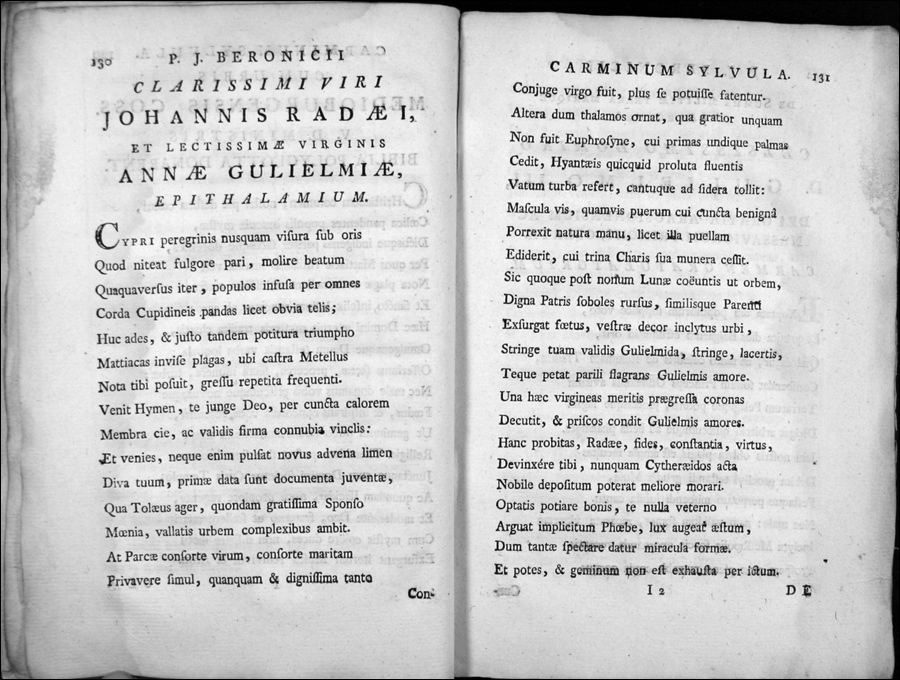 130
P. J. BERONICII
CLARISSIMI VIRI
JOHANNIS RADÆI,
ET LECTISSIMÆ VIRGINIS
ANNÆ GULIELMIÆ,
EPITHALAMIUM.
CYPRI peregrinis nusquam viſura ſub oris
Quod niteat fulgore pari, molire beatum
Quaquaverſus iter, populos infuſa per omnes
Corda Cupidineis pandas licet obvia telis;
Huc ades, & juſto tandem potitura triumpho
Mattiacas inviſe plagas, ubi caſtra Metellus
Nota tibi poſuit, greſſu repetita frequenti.
Venit Hymen, te junge Deo, per cuncta calorem
Membra cie, ac validis firma connubia vinclis:
Et venies, neque enim pulſat novus advena limen
Diva tuum, primæ data ſunt documenta juventæ,
Qua Tolæus ager, quondam gratiſſima Sponſo
Mœnia, vallatis urbem complexibus ambit.
At Parcæ conſorte virum, conſorte maritam
Privavere ſimul, quanquam & digniſſima tanto
Con-
CARMINUM SYLVULA. 131
Conjuge virgo fuit, plus ſe potuiſſe fatentur.
Altera dum thalamos ornat, qua gratior unquam
Non fuit Euphroſyne, cui primas undique palmas
Cedit, Hyantæis quicquid proluta fluentis
Vatum turba refert, cantuque ad ſidera tollit:
Maſcula vis, quamvis puerum cui cuncta benignâ
Porrexit natura manu, licet illa puellam
Ediderit, cui trina Charis ſua munera ceſſit.
Sic quoque poſt nonum Lunæ coëuntis ut orbem,
Digna Patris ſoboles rurſus, ſimilisque Parenti
Exſurgat fœtus, veſtræ decor inclytus urbi,
Stringe tuam validis Gulielmida, ſtringe, lacertis,
Teque petat parili flagrans Gulielmis amore.
Una hæc virgineas meritis prægreſſa coronas
Decutit, & priſcos condit Gulielmis amores.
Hanc probitas, Radæe, fides, conſtantia, virtus,
Devinxére tibi, nunquam Cytheræidos acta
Nobile depoſitum poterat meliore morari.
Optatis potiare bonis, te nulla veterno
Arguat implicitum Phœbe, lux augeat æſtum,
Dum tantæ ſpectare datur miracula formæ.
Et potes, & geminum non eſt exhauſta per ictum.
I 2
DE